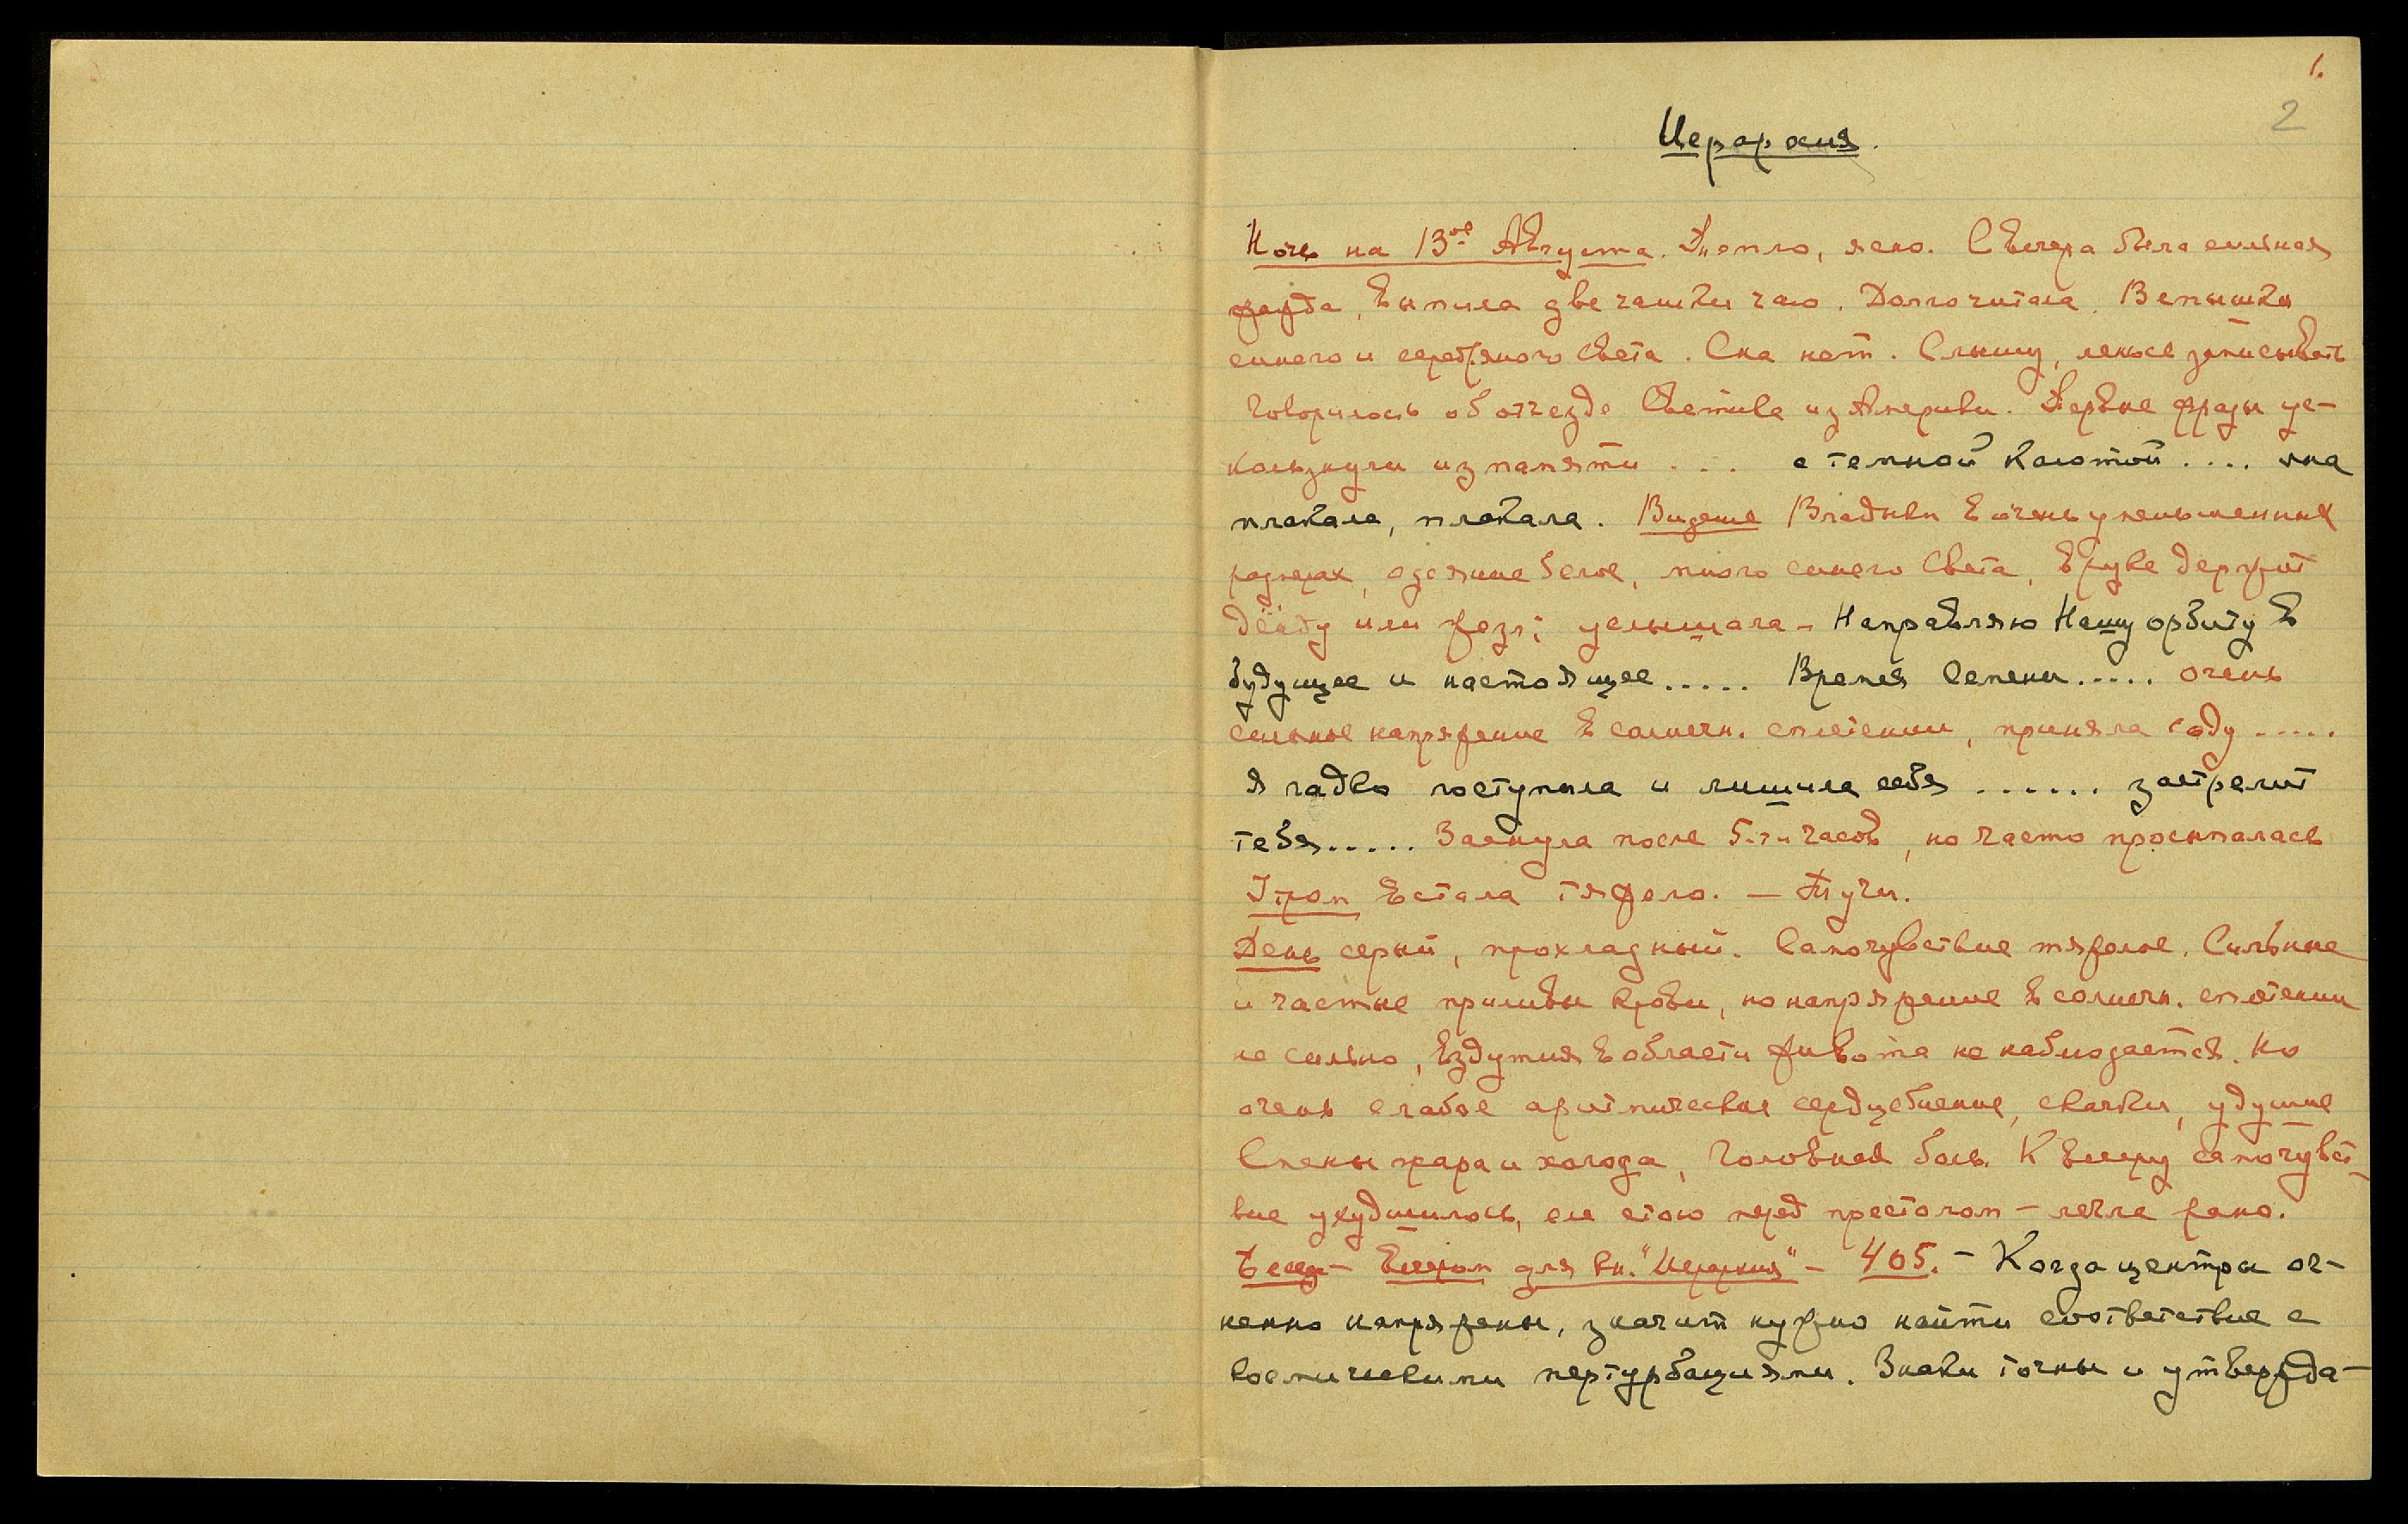 1.
2
Иерархия.
Ночь на 13ое Августа. Тепло, ясно. С вечера была сильная
жажда, выпила две чашки чаю. Долго читала. Вспышки
синего и серебряного света. Сна нет. Слышу, лень записывать
Говорилось об отъезде Светика из Америки. Первые фразы ус-
кользнули из памяти ... с темной каютой .... она
плакала, плакала. Видение Владыки в очень уменьшенных
размерах, одеяние белое, много синего света, в руке держит
или жезл; услышала – Направляю Нашу орбиту в
будущее и настоящее ..... Время Семени ..... очень
сильное напряжение в солнечн. сплетении, приняла соду .....
Я гадко поступила и лишила себя ...... застрелит
тебя ..... Заснула после 5-ти часов, но часто просыпалась
Утром встала тяжело. — Тучи.
День серый, прохладный. Самочувствие тяжелое. Сильные
и частые приливы крови, но напряжение в солнечн. сплетении
не сильно, вздутия в области живота не наблюдается. Но
очень слабое аритмическое сердцебиение, скачки, удушие
Смены жара и холода, головная боль. К вечеру самочувст-
вие ухудшилось, еле стою перед престолом – легла рано.
Бесед– Вечером для кн. "Иерархия" – 405. – Когда центры ог-
ненно напряжены, значит нужно найти соответствие с
космическими пертурбациями. Знаки точны и утвержда-